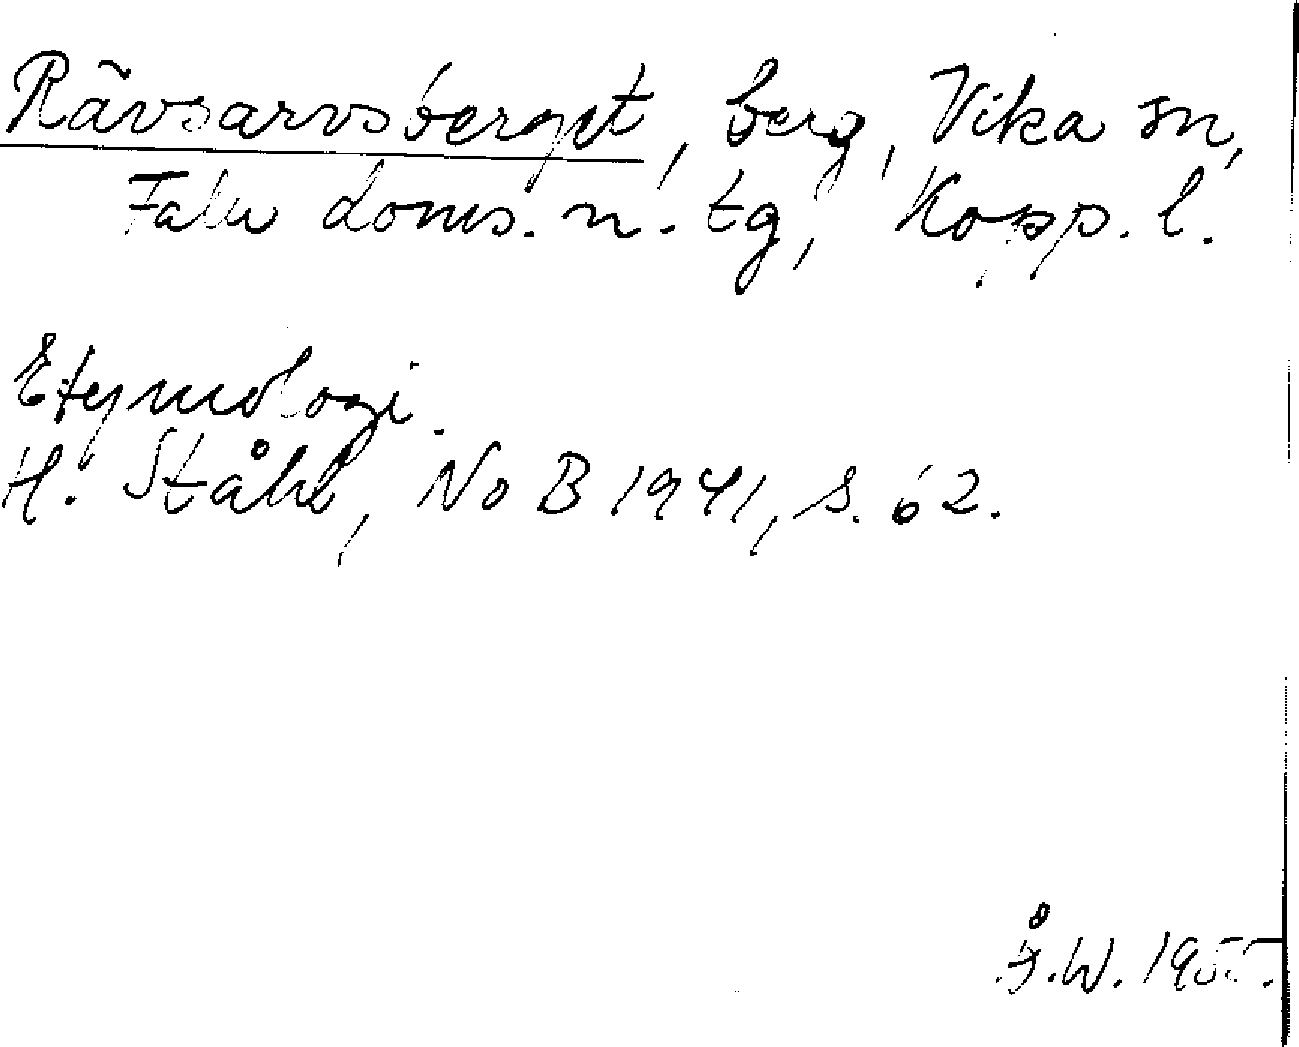 Rävsarvsberget, berg, Vika sn,
Falu doms. n. tg, Kopp. l.
Etymologi.
H. Ståhl, NoB 1941, s. 62.
Å.W. 1955.